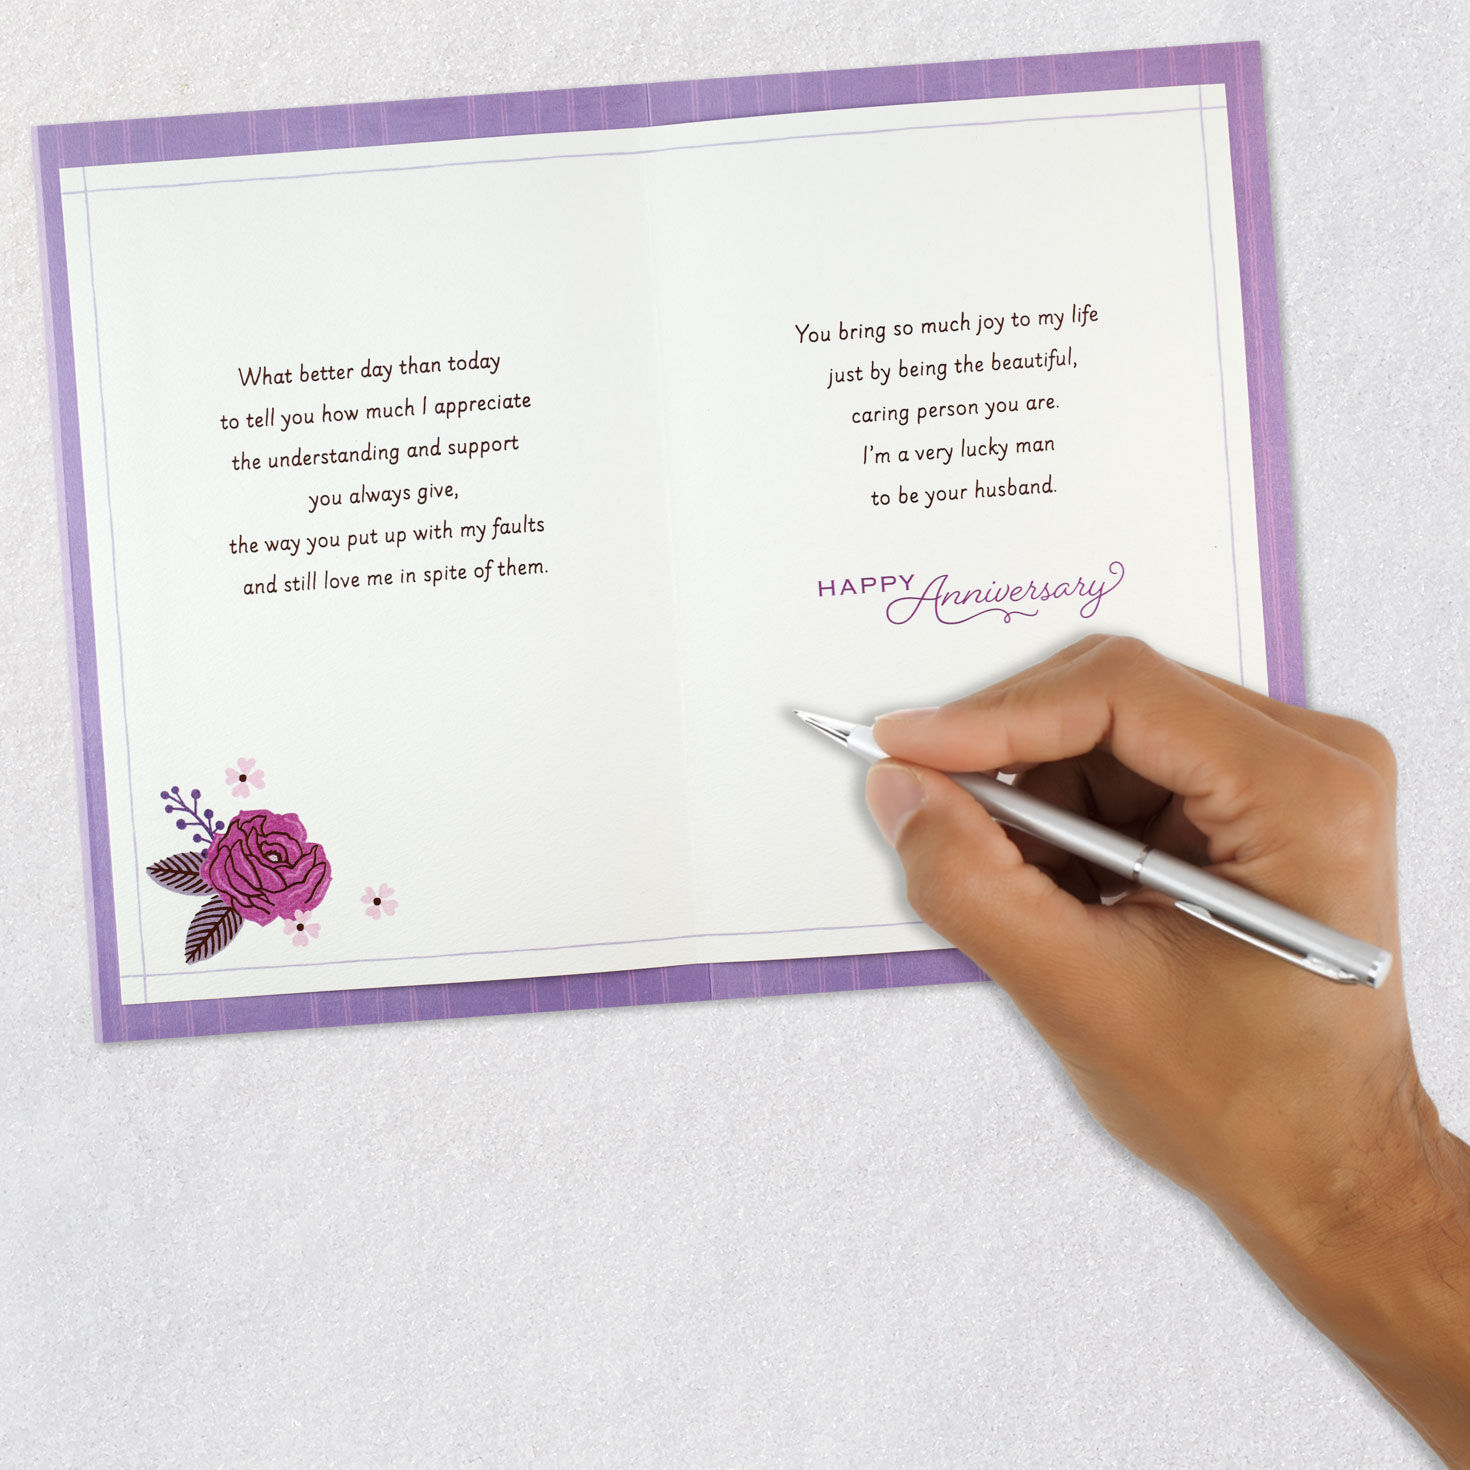 What better day than today
to tell you how much I appreciate
the understanding and support
you always give,
the way you put up with my faults
and still love me in spite of them.
You bring so much joy to my life
just by being the beautiful,
caring person you are.
I'm a very lucky man
to be your husband.
HAPPY Anniversary